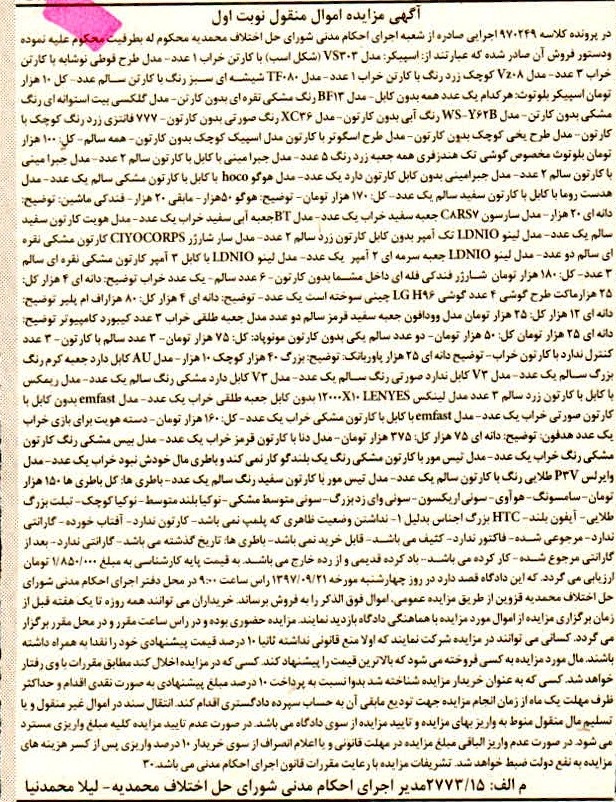 آگهی مزایده اموال منقول نوبت اول
در پرونده کلاسه ۹۷۰۲۴۹ اجرایی صادره از شعبه اجرای احکام مدنی شورای حل اختلاف محمدیه محکوم له بطرفیت محکوم علیه نموده
ودستور فروش آن صادر شده که عبارتند از: اسپیکر: مدل VS۳۰۳ (شکل اسب) با کارتن خراب ۱ عدد- مدل طرح قوطی نوشابه با کارتن
خراب ۳ عدد- مدل Vz۰۸ کوچک زرد رنگ با کارتن خراب ۱ عدد- مدل TF۰۸۰ شیشه ای سبز رنگ با کارتن سالم عدد- کل ۱۰ هزار
تومان اسپیکر بلوتوث: هرکدام یک عدد همه بدون کابل- مدل BF۱۳ رنگ مشکی نقره ای بدون کارتن- مدل گلکسی بیت استوانه ای رنگ
مشکی بدون کارتن- مدل WS-Y۶۲B رنگ آبی بدون کارتن- مدل XC۳۶ رنگ صورتی بدون کارتن- ۷۷۷ فانتزی زرد رنگ کوچک با
کارتن- مدل طرح یخی کوچک بدون کارتن- مدل طرح اسکوتر با کارتن مدل اسپیک کوچک بدون کارتن- همه سالم- کل: ۱۰۰ هزار
تومان بلوتوث مخصوص گوشی تک هندزفری همه جعبه زرد رنگ ۵ عدد- مدل جبرا مینی با کابل با کارتن سالم ۲ عدد- مدل جبرا مینی
با کارتن سالم ۲ عدد- مدل جبرامینی بدون کابل کارتن دارد یک عدد- مدل هوگو hoco با کابل با کارتن مشکی سالم یک عدد- مدل
هدست روما با کابل با کارتن سفید سالم یک عدد- کل: ۱۷۰ هزار تومان- توضیح: هوگو ۵۰هزار- مابقی ۲۰ هزار- فندکی ماشین: توضیح:
دانه ای ۲۰ هزار- مدل سارسون CARSV جعبه سفید خراب یک عدد- مدل BTجعبه آبی سفید خراب یک عدد- مدل هویت کارتن سفید
سالم یک عدد- مدل لینو LDNIO تک آمپر بدون کابل کارتن زرد سالم ۲ عدد- مدل سار شارژر CIYOCORPS کارتون مشکی نقره
ای سالم دو عدد- مدل لینو LDNIO جعبه سرمه ای ۲ آمپر یک عدد- مدل لینو LDNIO با کابل ۳ آمپر کارتون مشکی نقره ای سالم
۳ عدد- کل: ۱۸۰ هزار تومان شارژر فندکی فله ای داخل مشما بدون کارتون- ۶ عدد سالم- یک عدد خراب توضیح: دانه ای ۴ هزار کل:
۲۵ هزارماکت طرح گوشی ۴ عدد گوشی LG H۹۶ چینی سوخته است یک عدد- توضیح: دانه ای ۴ هزار کل: ۸۰ هزاراف ام پلیر توضیح:
دانه ای ۱۲ هزار کل: ۲۵ هزار تومان مدل وودافون جعبه سفید قرمز سالم دو عدد مدل جعبه طلقی خراب ۳ عدد کیبورد کامپیوتر توضیح:
دانه ای ۲۵ هزار تومان کل: ۵۰ هزار تومان- دو عدد سالم یکی بدون کارتون مونوپاد: کل: ۷۵ هزار تومان- ۳ عدد سالم با کارتون- ۳ عدد
کنترل ندارد با کارتون خراب- توضیح دانه ای ۲۵ هزار پاوربانک: توضیح: بزرگ ۴۰ هزار کوچک ۱۰ هزار- مدل AU کابل دارد جعبه کرم رنگ
بزرگ سالم یک عدد- مدل V۳ کابل ندارد صورتی رنگ سالم یک عدد- مدل V۳ کابل دارد مشکی رنگ سالم یک عدد- مدل ریمکس
با کابل با کارتون زرد سالم ۳ عدد مدل لینکس LENYES ۱۲۰۰۰X۱۰ بدون کابل جعبه طلقی خراب یک عدد- مدل emfast بدون کابل با
کارتون صورتی خراب یک عدد- مدل emfast با کابل با کارتون مشکی خراب یک عدد- کل: ۱۶۰ هزار تومان- دسته هویت برای بازی خراب
یک عدد هدفون: توضیح: دانه ای ۷۵ هزار کل: ۳۷۵ هزار تومان- مدل دنا با کارتون قرمز خراب یک عدد- مدل بیس مشکی رنگ کارتون
مشکی رنگ خراب یک عدد- مدل تیس مور با کارتون مشکی رنگ یک بلندگو کار نمی کند و باطری مال خودش نبود خراب یک عدد- مدل
وایرلس P۳V طلایی رنگ با کارتون سالم یک عدد- مدل تیس مور با کارتون سفید رنگ سالم یک عدد- باطری ها: کل باطری ها ۱۵۰ هزار
تومان- سامسونگ- هوآوی- سونی اریکسون- سونی وای زد بزرگ- سونی متوسط مشکی- نوکیا بلند متوسط- نوکیا کوچک- تبلت بزرگ
طلایی- آیفون بلند- HTC بزرگ اجناس بدلیل ۱- نداشتن وضعیت ظاهری که پلمپ نمی باشد- کارتون ندارد- آفتاب خورده- گارانتی
ندارد- مرجوعی شده- فاکتور ندارد- کثیف می باشد- قابل خرید نمی باشد- باطری ها: تاریخ گذشته می باشد- گارانتی ندارد- بعد از
گارانتی مرجوع شده- کار کرده می باشد- باد کرده قدیمی و از رده خارج می باشد. به قیمت پایه کارشناسی به مبلغ ۱/۸۵۰/۰۰۰ تومان
ارزیابی می گردد. که این دادگاه قصد دارد در روز چهارشنبه مورخه ۱۳۹۷/۰۹/۲۱ راس ساعت ۹:۰۰ در محل دفتر اجرای احکام مدنی شورای
حل اختلاف محمدیه قزوین از طریق مزایده عمومی، اموال فوق الذکر را به فروش برساند. خریداران می توانند همه روزه تا یک هفته قبل از
زمان برگزاری مزایده از اموال مورد مزایده با هماهنگی دادگاه بازدید نمایند. مزایده حضوری بوده و در راس ساعت مقرر و در محل مقرر برگزار
می گردد. کسانی می توانند در مزایده شرکت نمایند که اولا منع قانونی نداشته ثانیا ۱۰ درصد قیمت پیشنهادی خود را نقدا به همراه داشته
باشند. مال مورد مزایده به کسی فروخته می شود که بالاترین قیمت را پیشنهاد کند. کسی که در مزایده اخلال کند مطابق مقررات با وی رفتار
خواهد شد. کسی که به عنوان خریدار مزایده شناخته شد بدوا نسبت به پرداخت ۱۰ درصد مبلغ پیشنهادی به صورت نقدی اقدام و حداکثر
ظرف مهلت یک ماه از زمان انجام مزایده جهت تودیع مابقی آن به حساب سپرده دادگستری اقدام کند. انتقال سند در اموال غیر منقول و یا
تسلیم مال منقول منوط به واریز بهای مزایده و تایید مزایده از سوی دادگاه می باشد. در صورت عدم تایید مزایده کلیه مبلغ واریزی مسترد
می شود. در صورت عدم واریز الباقی مبلغ مزایده در مهلت قانونی و یا اعلام انصراف از سوی خریدار ۱۰ درصد واریزی پس از کسر هزینه های
مزایده به نفع دولت ضبط خواهد شد. تشریفات مزایده با رعایت مقررات قانون اجرای احکام مدنی می باشد.۳۰
م الف: ۲۷۷۳/۱۵مدیر اجرای احکام مدنی شورای حل اختلاف محمدیه- لیلا محمدنیا